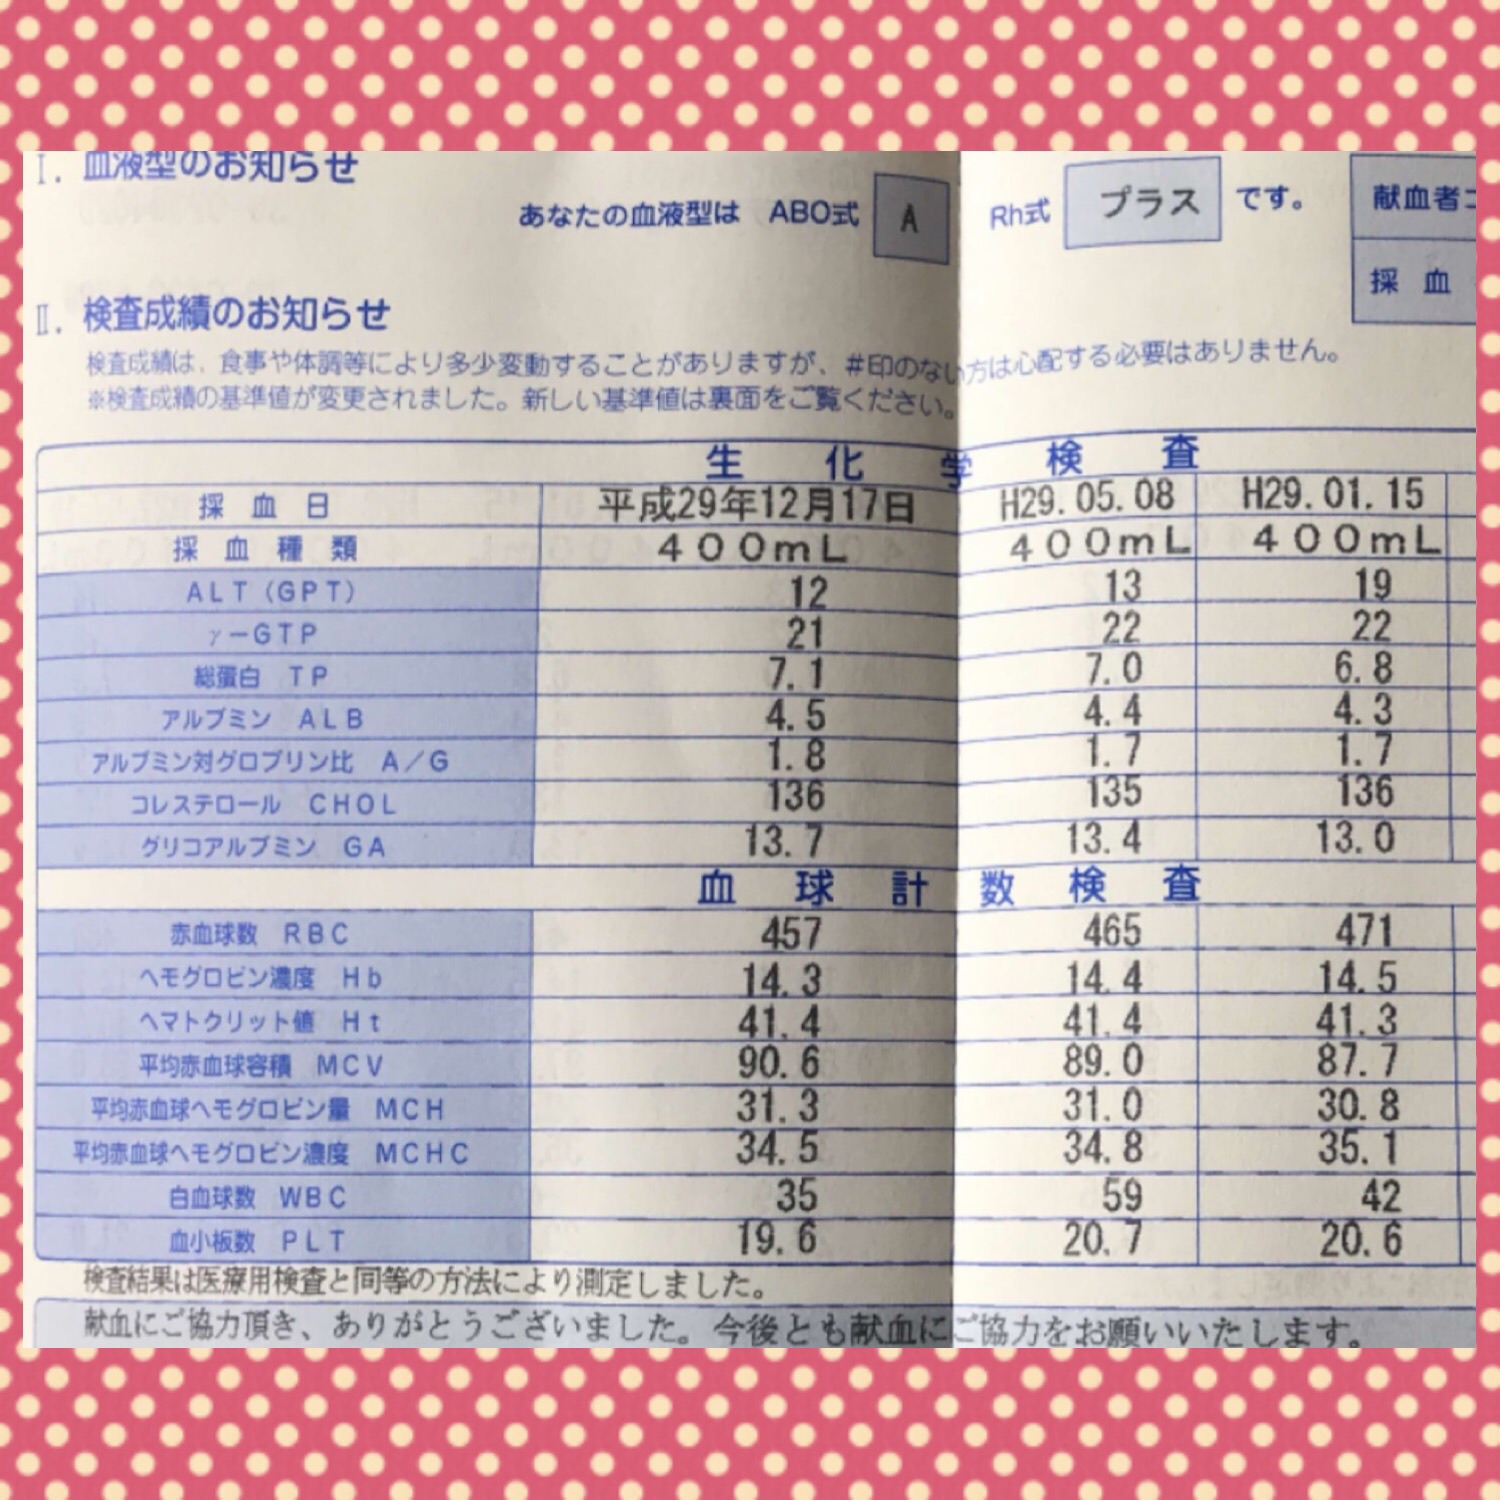 I. 血液型のお知らせ
あなたの血液型は ABO式 A Rh式 プラス です。
献血者コ
採 血
II. 検査成績のお知らせ
検査成績は、食事や体調等により多少変動することがありますが、#印のない方は心配する必要はありません。
※検査成績の基準値が変更されました。新しい基準値は裏面をご覧ください。
生 化 学 検 査
採 血 日 平成29年12月17日 H29.05.08 H29.01.15
採 血 種 類 400mL 400mL 400mL
ALT(GPT) 12 13 19
γ-GTP 21 22 22
総蛋白 TP 7.1 7.0 6.8
アルブミン ALB 4.5 4.4 4.3
アルブミン対グロブリン比 A/G 1.8 1.7 1.7
コレステロール CHOL 136 135 136
グリコアルブミン GA 13.7 13.4 13.0
血 球 計 数 検 査
赤血球数 RBC 457 465 471
ヘモグロビン濃度 Hb 14.3 14.4 14.5
ヘマトクリット値 Ht 41.4 41.4 41.3
平均赤血球容積 MCV 90.6 89.0 87.7
平均赤血球ヘモグロビン量 MCH 31.3 31.0 30.8
平均赤血球ヘモグロビン濃度 MCHC 34.5 34.8 35.1
白血球数 WBC 35 59 42
血小板数 PLT 19.6 20.7 20.6
検査結果は医療用検査と同等の方法により測定しました。
献血にご協力頂き、ありがとうございました。今後とも献血にご協力をお願いいたします。